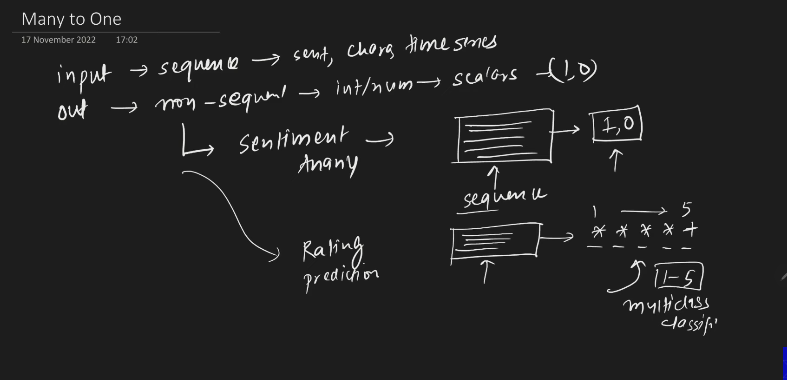 Many to One
17 November 2022 17:02
input → sequence → sent, chars, time series
out → non-sequent → int/num → scalars → (1,0)
Sentiment →
Anany
1,0
sequence
1 → 5
* * * * +
Rating
prediction
1-5
multiclass
classifi